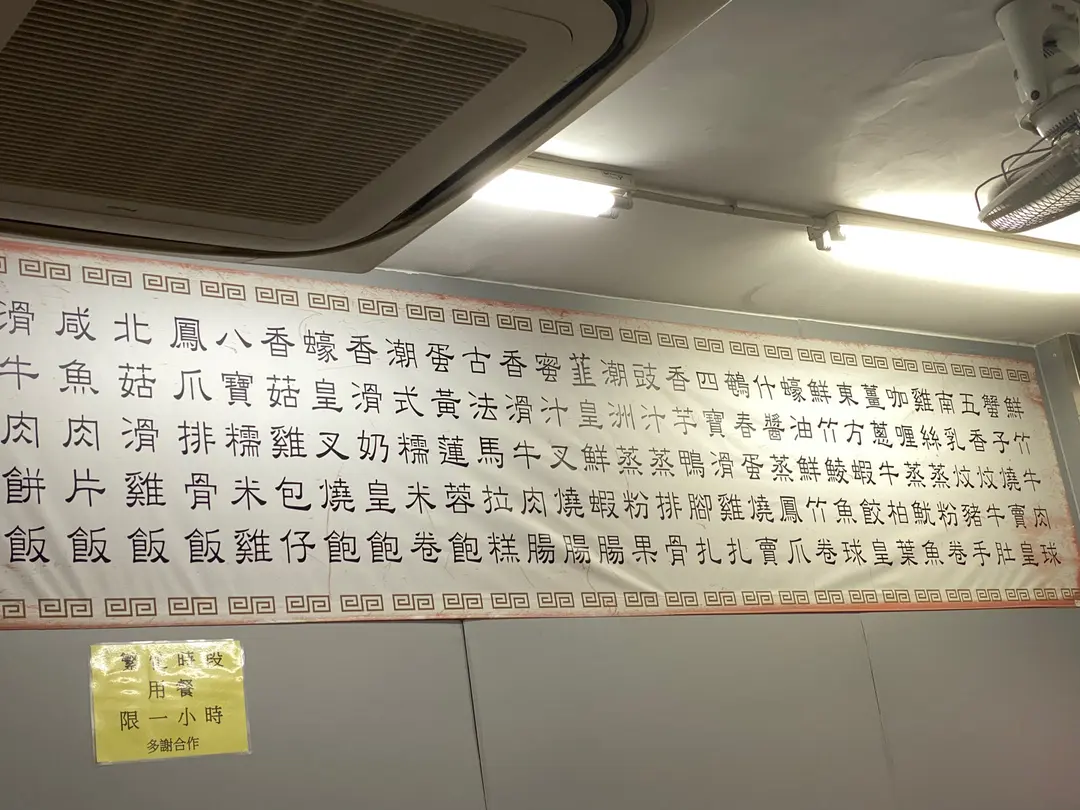 鮮竹牛肉球
蟹子燒賣皇
五香炆牛肚
南乳炆豬手
雞絲蒸粉卷
咖喱蒸魷魚
薑蔥牛柏葉
東方蝦餃皇
鮮竹鯪魚球
蠔油鮮竹卷
什醬蒸鳳爪
鵪春蛋燒賣
四寶滑雞扎
香芋鴨腳扎
豉汁蒸排骨
潮洲蒸粉果
韮皇鮮蝦腸
蜜汁叉燒腸
香滑牛肉腸
古法馬拉糕
蛋黃蓮蓉飽
潮式糯米卷
香滑奶皇飽
蠔皇叉燒飽
香菇雞包仔
八寶糯米雞
鳳爪排骨飯
北菇滑雞飯
咸魚肉片飯
滑牛肉餅飯
繁忙時段
用餐
限一小時
多謝合作